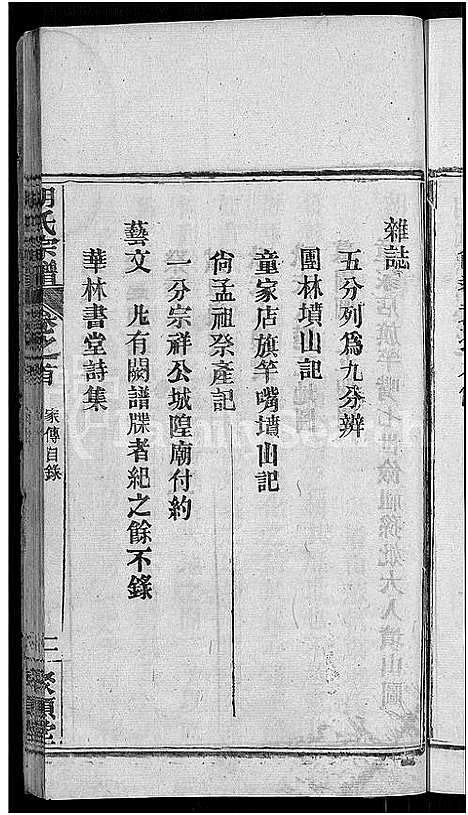 雜誌
五分列爲九分辨
團林墳山記
童家店旗竿嘴墳山記
尙孟祖祭產記
一分宗祥公城隍廟付約
藝文 凡有關譜牒者紀之餘不錄
華林書堂詩集
胡氏宗譜 卷之首 家傳目錄 二 聚順堂